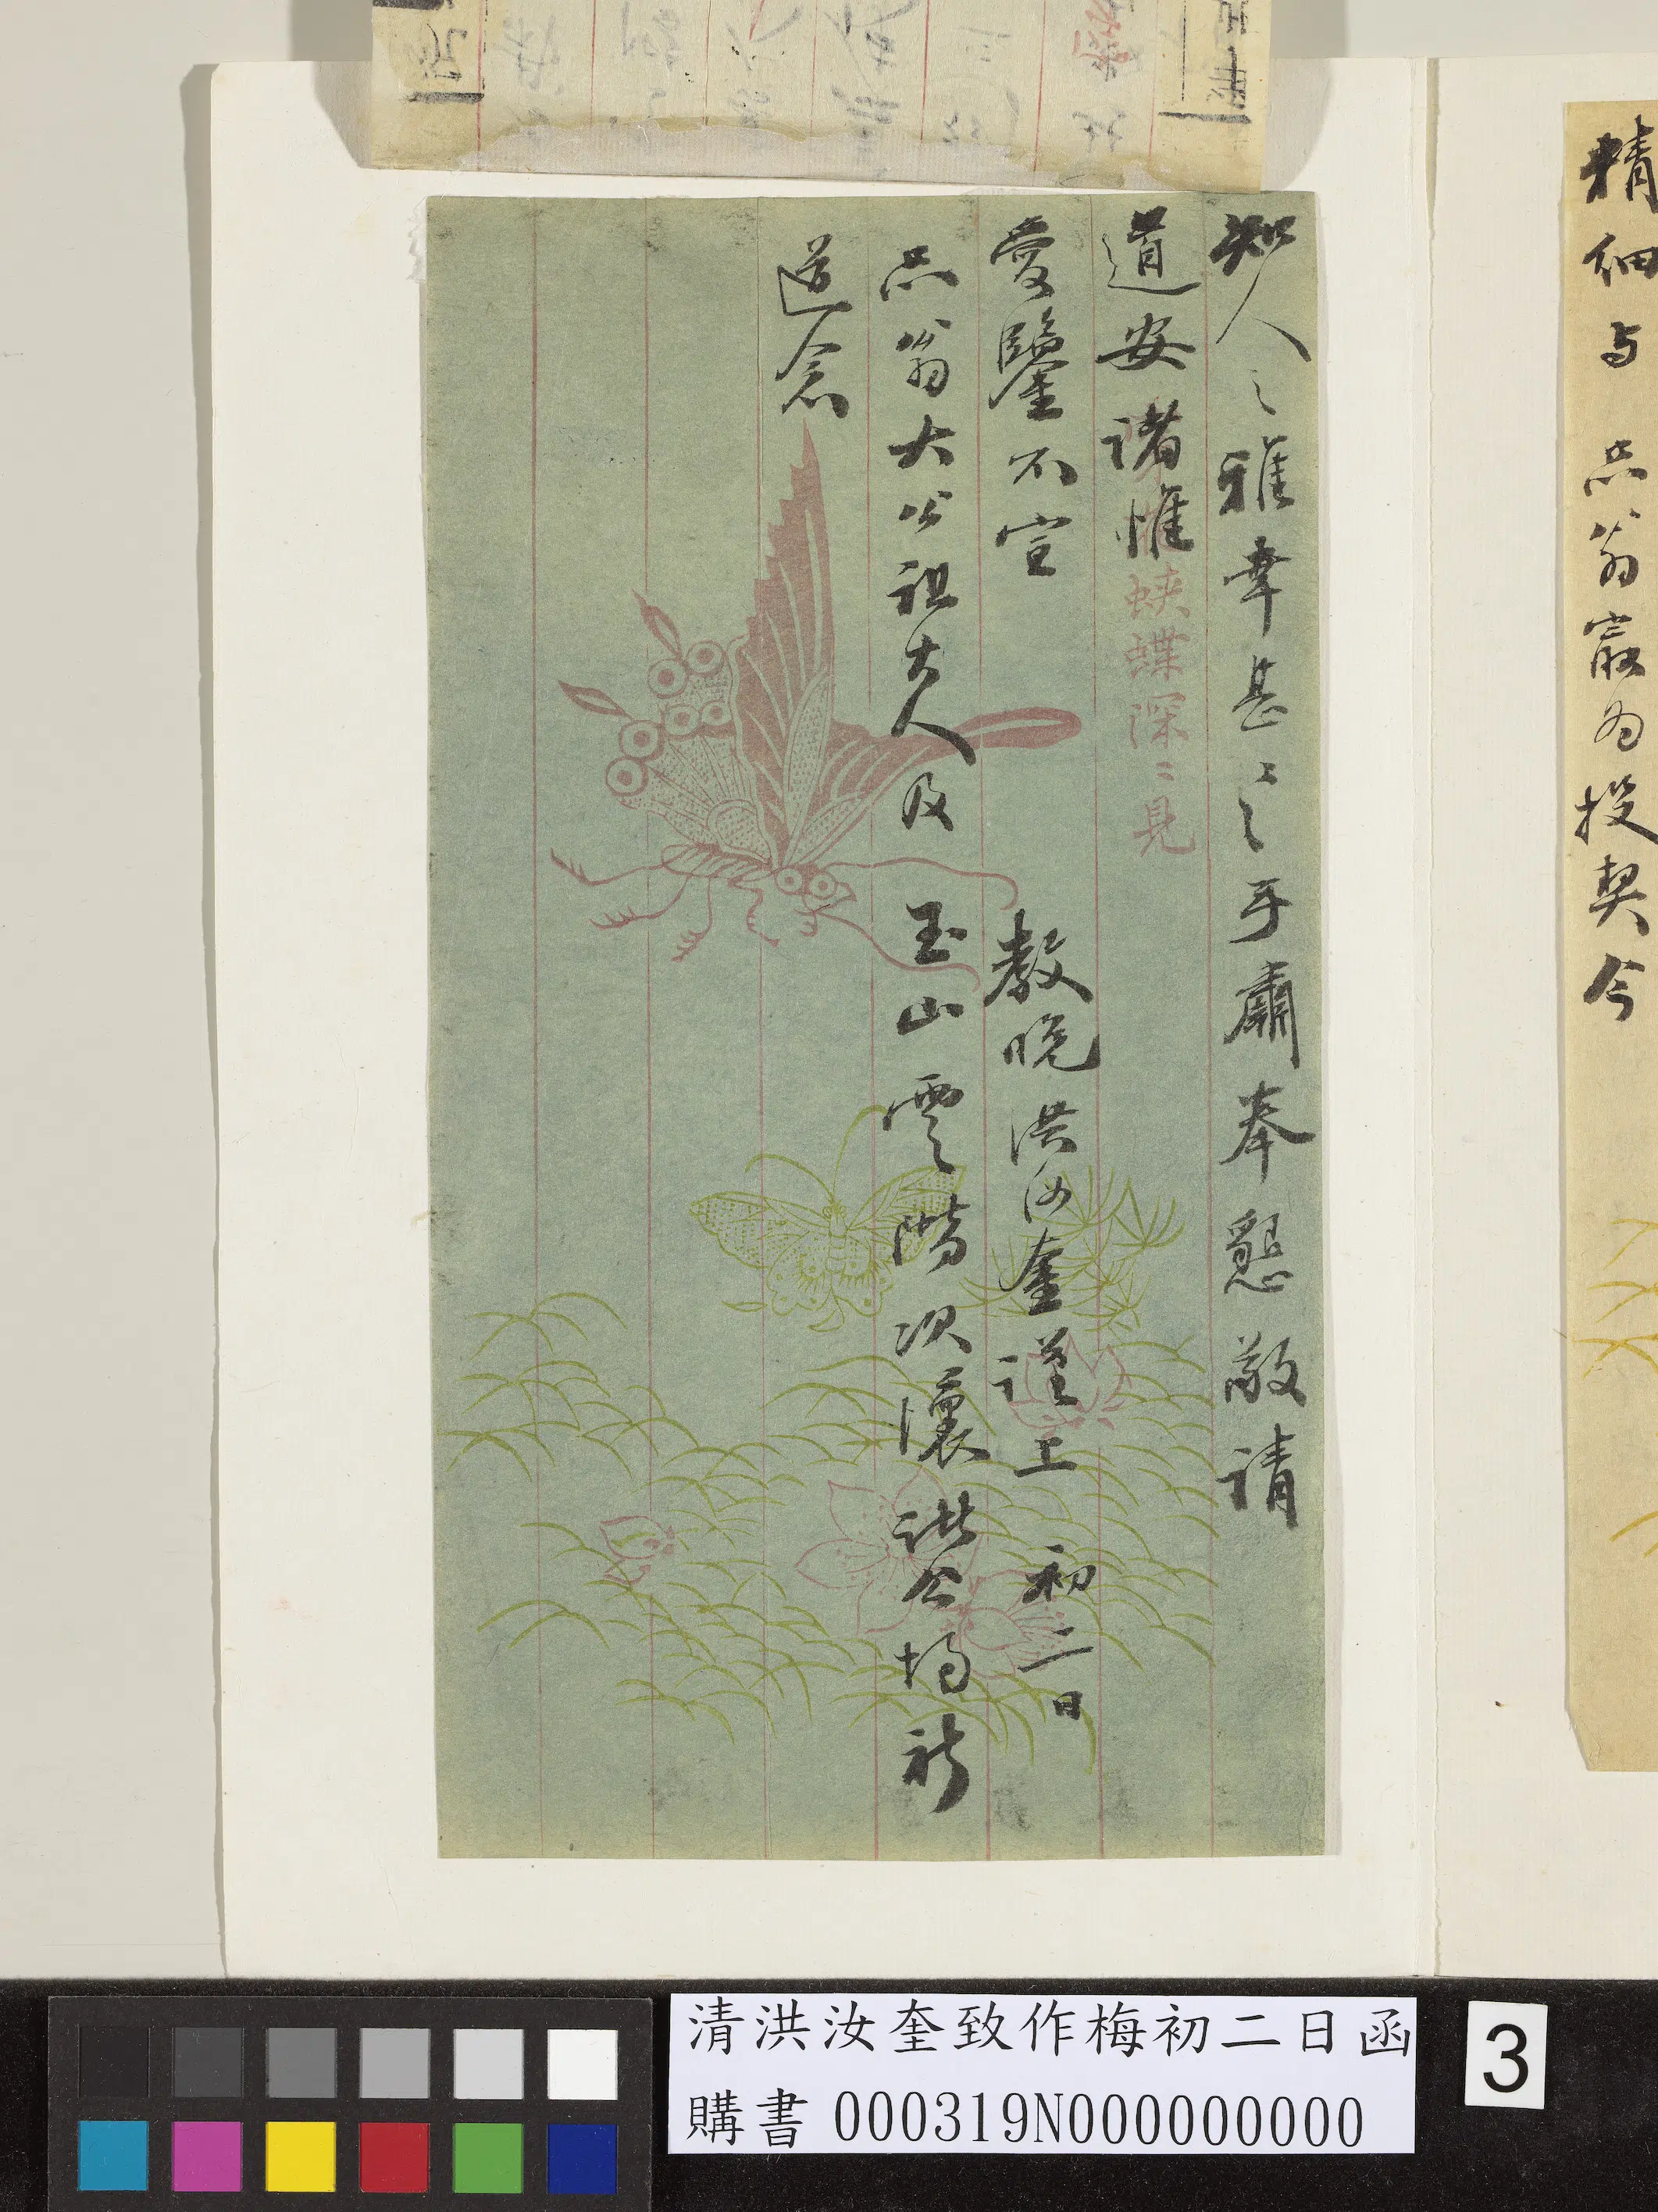 精細与 品翁最为投契今
知人之雅幸甚〻之手肅奉懇敬請
道安諸惟
蛺蝶深〻見
愛鑒不宣
教晚洪汝奎謹上 初二日
品翁大公祖大人及 玉山 雲階 次瀼 諸公均祈
道念
清洪汝奎致作梅初二日函
購書 000319N000000000
3